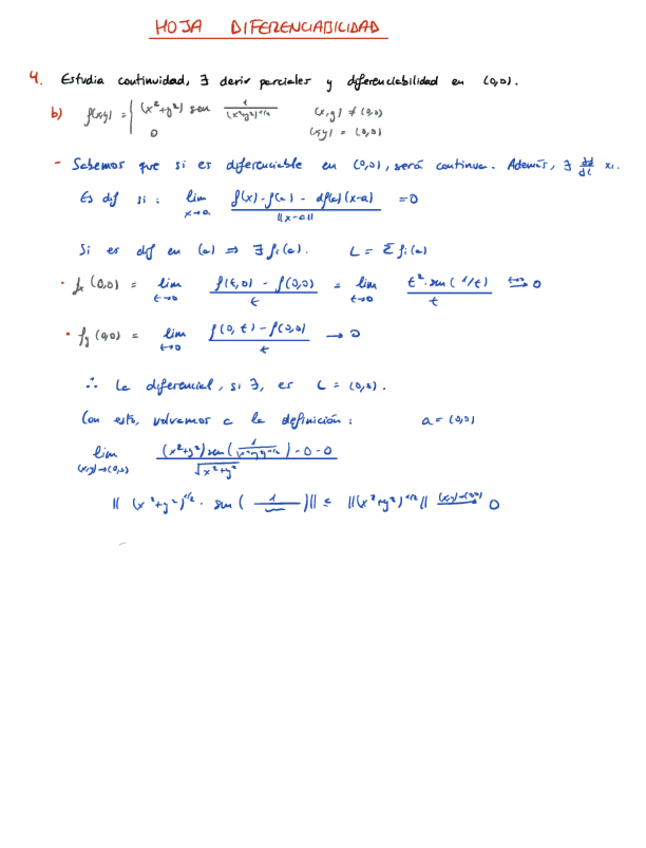 HOJA DIFERENCIABILIDAD
4. Estudia continuidad, ∃ deriv parciales y diferenciabilidad en (0,0).
b) f(x,y) = { (x²+y²) sen 1/(x²+y²)^1/2 (x,y) ≠ (0,0)
0 (x,y) = (0,0)
- Sabemos que si es diferenciable en (0,0), será continua. Además, ∃
Es dif si: lim x→a f(x)-f(a)-df(a)(x-a) / ||x-a|| = 0
Si es dif en (a) ⇒ ∃ fi(a). L = Σ fi(a)
· fx (0,0) = lim t→0 f(t,0) - f(0,0) / t = lim t→0 t²·sen(1/t) / t t→0 0
· fy (0,0) = lim t→0 f(0,t) - f(0,0) / t → 0
∴ La diferencial, si ∃, es L = (0,0).
Con esto, volvamos a la definición: a = (0,0)
lim (x,y)→(0,0) (x²+y²) sen(1/(x²+y²)^1/2) - 0 - 0 / √x²+y²
|| (x²+y²)^1/2 · sen( 1/~ ) || ≤ || (x²+y²)^1/2 || (x,y)→(0,0) 0